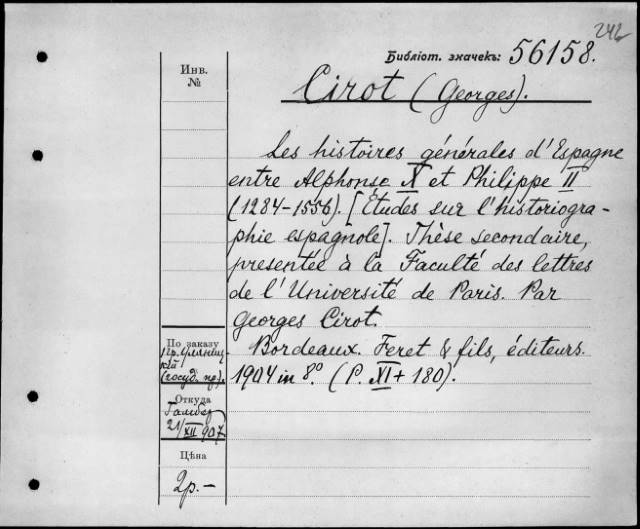 242
Библіот. значекъ: 56158.
Инв.
№
Cirot (Georges).
Les histoires générales d'Espagne
entre Alphonse X et Philippe II
(1284-1556). [Études sur l'historiogra-
phie espagnole]. Thèse secondaire,
présentée à la Faculté des lettres
de l'Université de Paris. Par
Georges Cirot.
Bordeaux. Feret & fils, éditeurs.
1904 in 8.° (P. XI + 180).
По заказу
(госуд. пр.).
Откуда
21/XII 907
Цѣна
2р.-